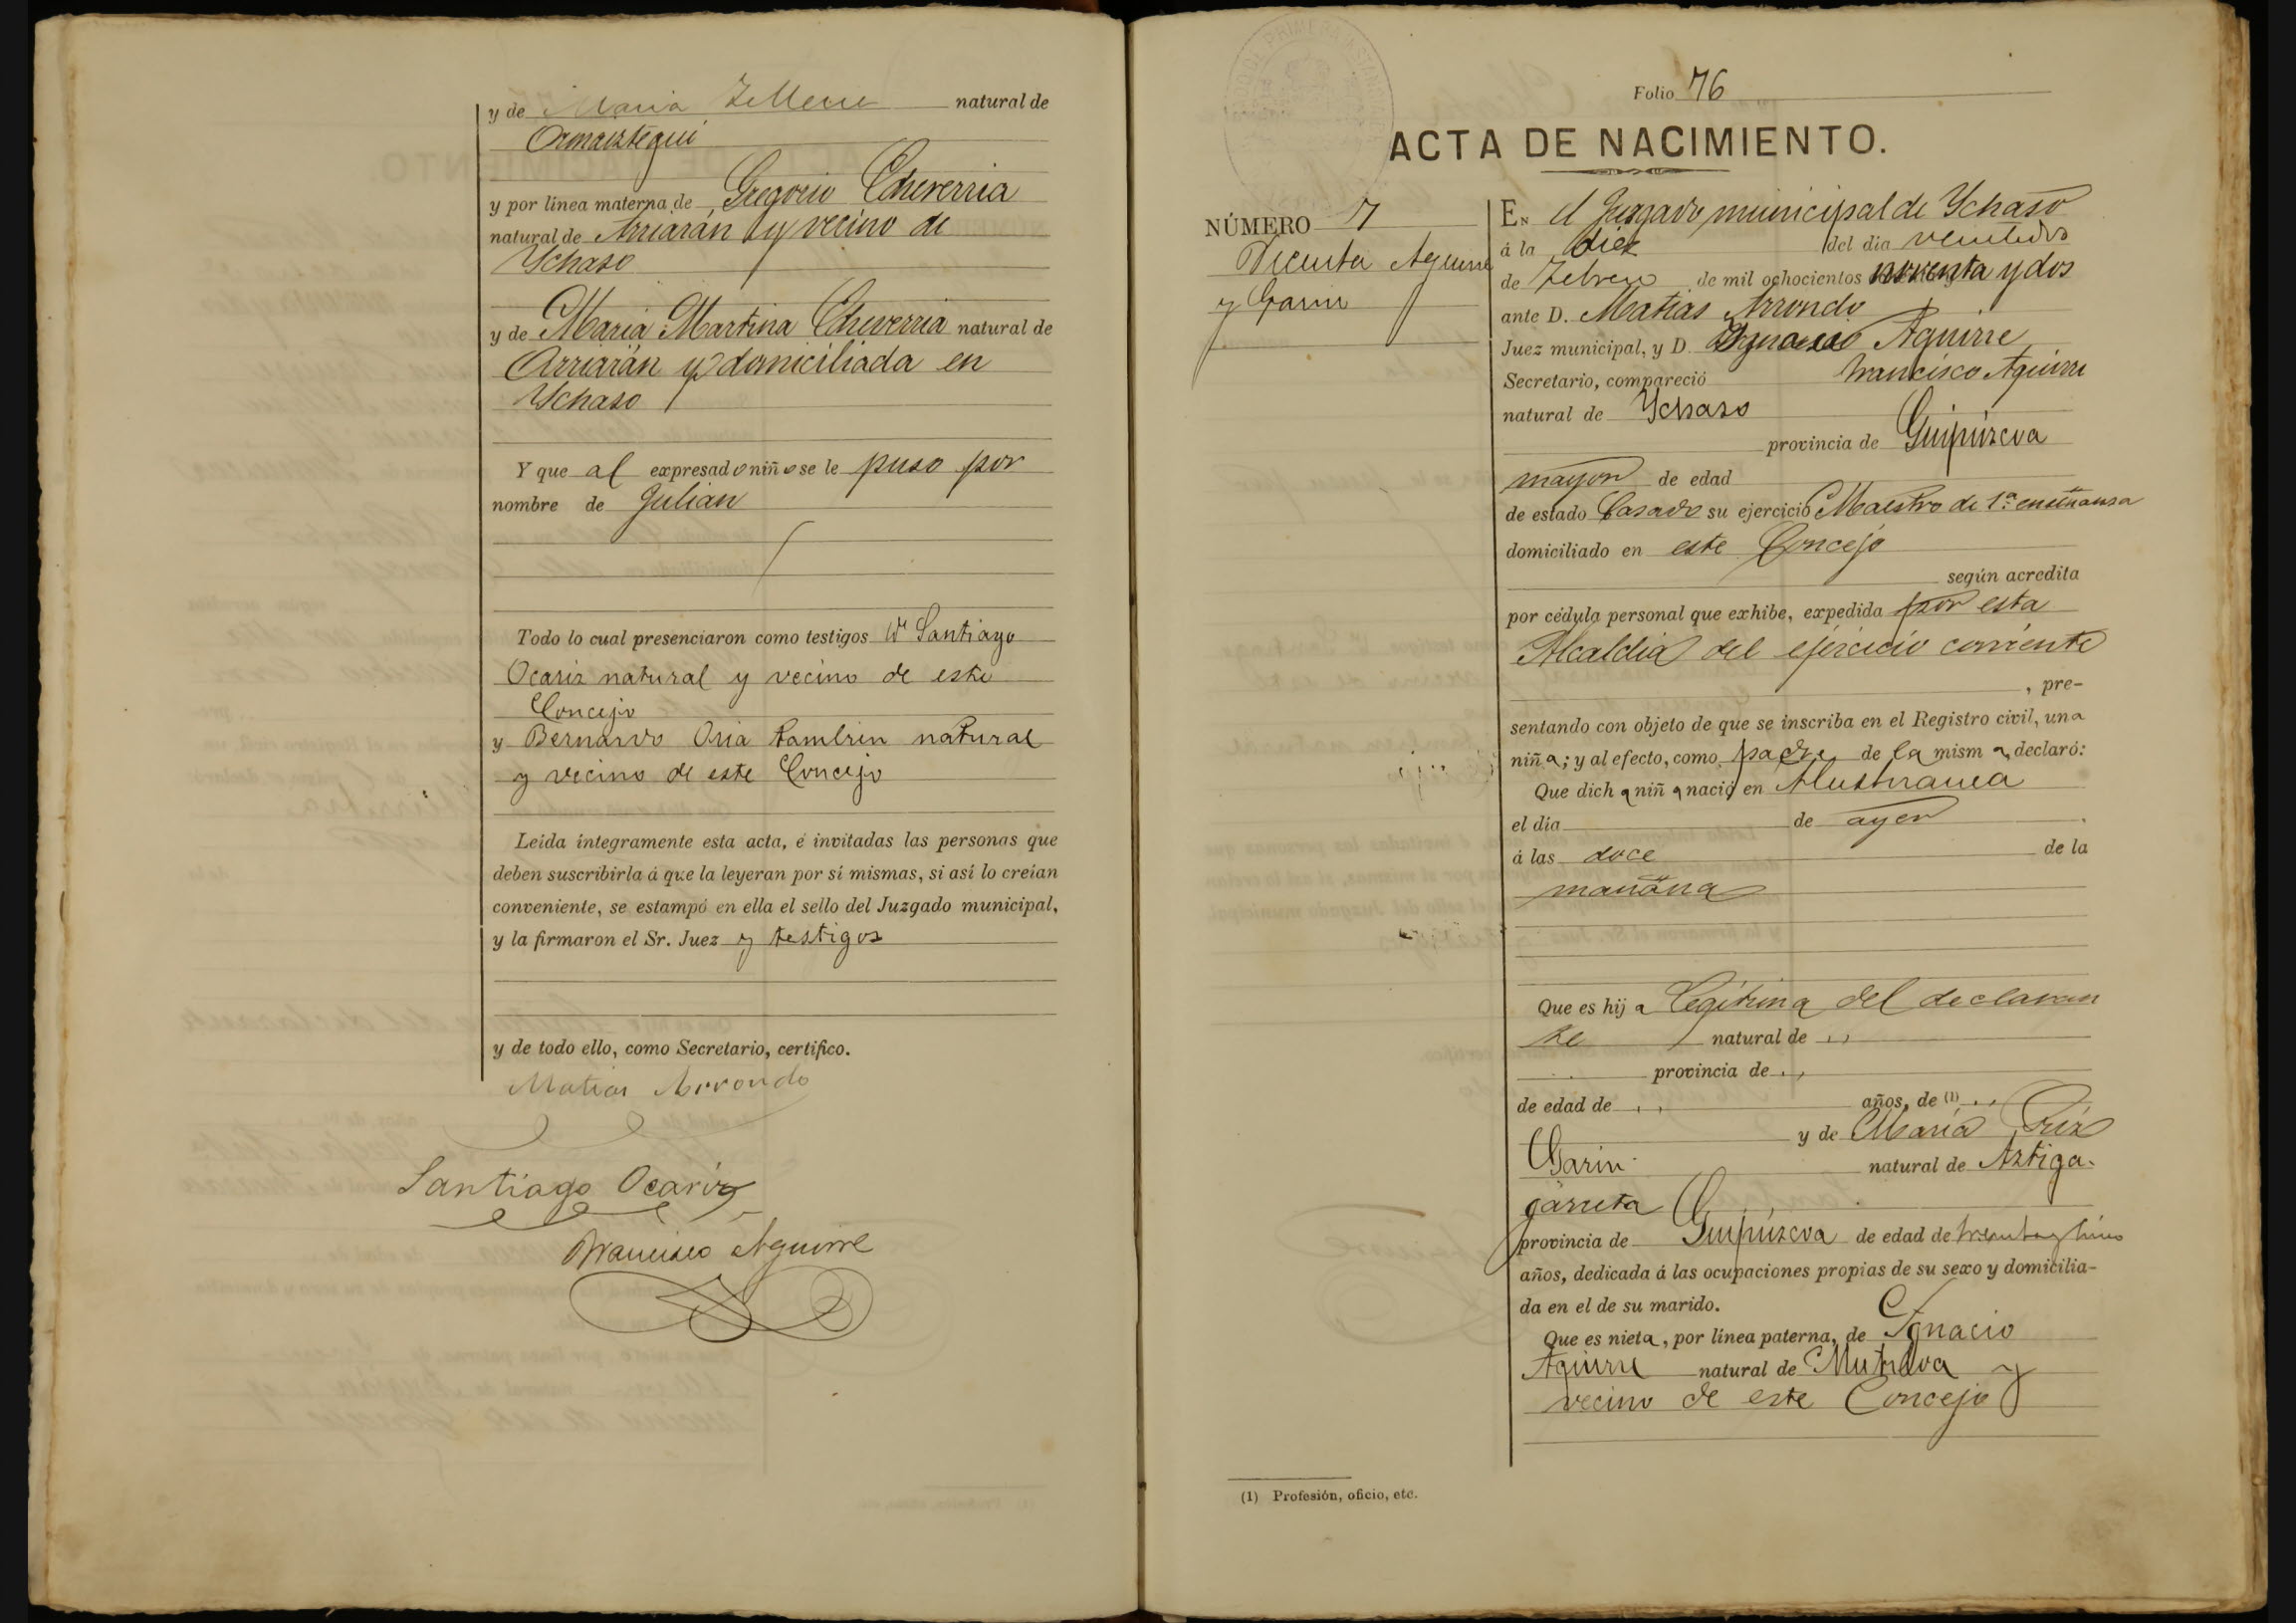 y de Maria Tellerie natural de
Ormaiztegui
y por línea materna de Gregorio Echeverria
natural de Arriarán y vecino de
Ychaso
y de Maria Martina Echeverria natural de
Arriarán y domiciliada en
Ychaso
Y que al expresado niño se le puso por
nombre de Julian
Todo lo cual presenciaron como testigos Dn Santiago
Ocariz natural y vecino de este
Concejo
y Bernardo Oria tambien natural
y vecino de este Concejo
Leída íntegramente esta acta, é invitadas las personas que
deben suscribirla á que la leyeran por sí mismas, si así lo creían
conveniente, se estampó en ella el sello del Juzgado municipal,
y la firmaron el Sr. Juez y testigos
y de todo ello, como Secretario, certifico.
Matias Arrondo
Santiago Ocariz
Francisco Aguirre
Folio 76
ACTA DE NACIMIENTO.
NÚMERO 7
Vicenta Aguirre
y Garin
En el Juzgado municipal de Ychaso
á la diez del dia veintidos
de Febrero de mil ochocientos noventa y dos
ante D. Matias Arrondo
Juez municipal, y D. Ignacio Aguirre
Secretario, compareció Francisco Aguirre
natural de Ychaso
provincia de Guipúzcoa
mayor de edad
de estado Casado su ejercicio Maestro de 1.ª enseñansa
domiciliado en este Concejo
según acredita
por cédula personal que exhibe, expedida por esta
Alcaldia del ejercicio corriente
, pre-
sentando con objeto de que se inscriba en el Registro civil, una
niña; y al efecto, como padre de la misma, declaró:
Que dicha niña nació en
el día de ayer
á las doce de la
mañana
Que es hija legítima del declaran
te natural de ,,
provincia de ,,
de edad de ,, años, de (1) ,,
y de María Cruz
Garin natural de Aztiga-
garreta
provincia de Guipúzcoa de edad de treinta y cinco
años, dedicada á las ocupaciones propias de su sexo y domicilia-
da en el de su marido.
Que es nieta, por línea paterna, de Ignacio
Aguirre natural de Mutiloa y
vecino de este Concejo
(1) Profesión, oficio, etc.